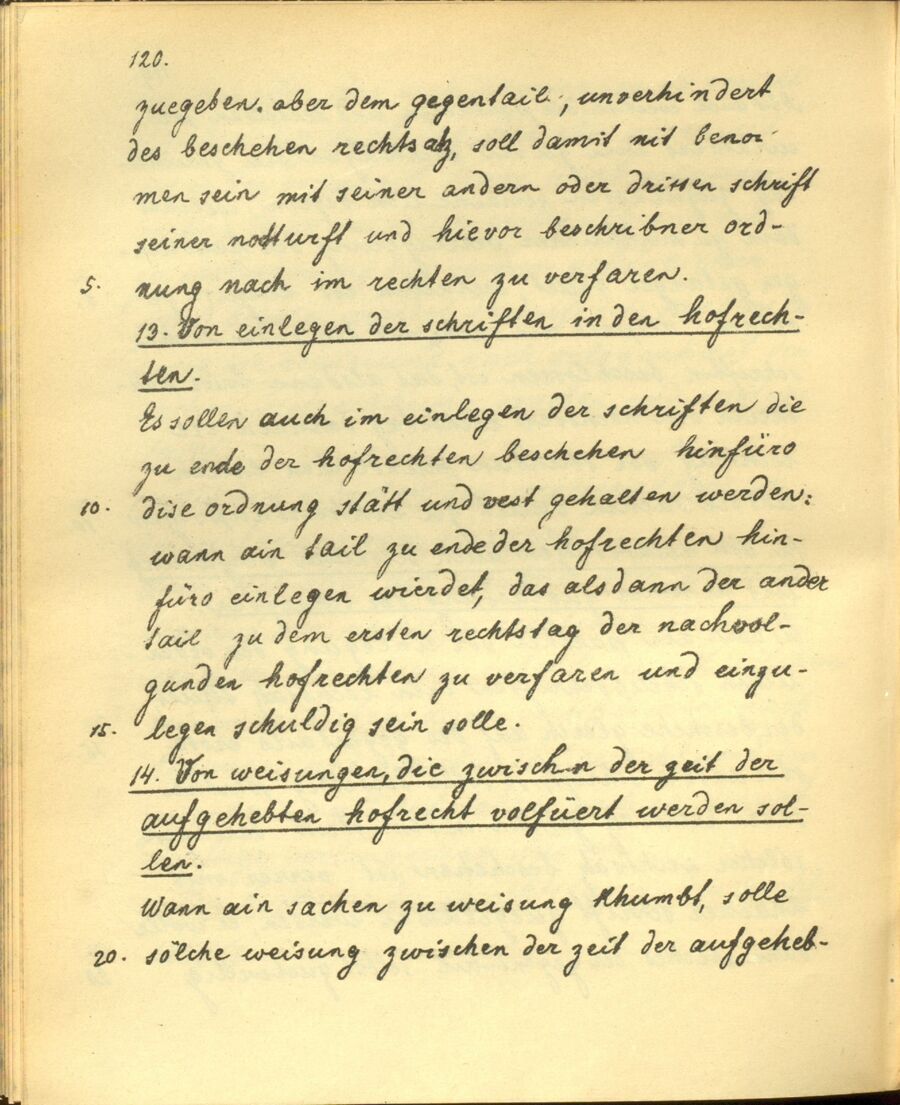 120.
zuegeben. aber dem gegentail, unverhindert
des beschehen rechtsatz, soll damit nit benom-
men sein mit seiner andern oder dritten schrift
seiner notturft und hievor beschribner ord-
5. nung nach im rechten zu verfaren.
13. Von einlegen der schriften in den hofrech-
ten.
Es sollen auch im einlegen der schriften die
zu ende der hofrechten beschehen hinfüro
10. dise ordnung stätt und vest gehalten werden:
wann ain tail zu ende der hofrechten hin-
füro einlegen wierdet, das alsdann der ander
tail zu dem ersten rechtstag der nachvol-
gunden hofrechten zu verfaren und einzu-
15. legen schuldig sein solle.
14. Von weisungen, die zwischn der zeit der
aufgehebten hofrecht volfüert werden sol-
len.
Wann ain sachen zu weisung khumbt, solle
20. sölche weisung zwischen der zeit der aufgeheb-